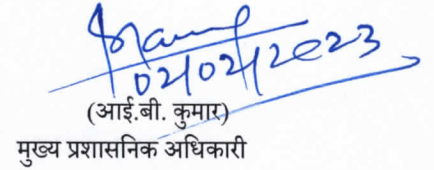 02/02/2023
(आई.बी. कुमार)
मुख्य प्रशासनिक अधिकारी